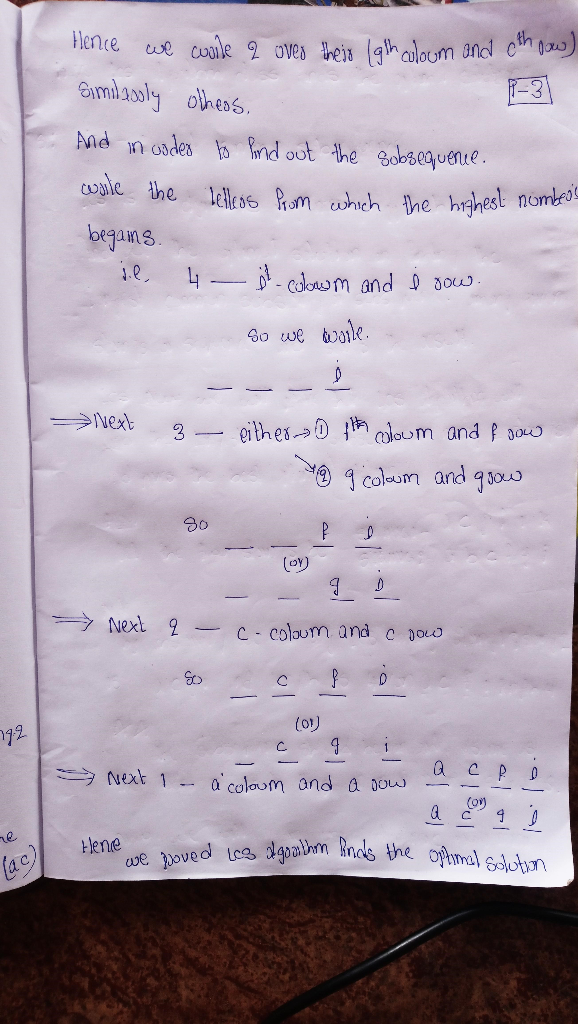 Hence we write 2 over their (gth coloum and cth row)
P-3
Similarly others.
And in order to find out the subsequence.
write the letters from which the highest number's
begains.
i.e, 4 — ith-coloum and i row.
So we write.
_ _ _ i
⇒ Next 3 — either → ① fth coloum and f row
② g coloum and g row
So _ _ f i
(or)
_ _ g i
⇒ Next 2 — c - coloum and c row
So _ c f i
(or)
_ c g i
⇒ Next 1 — a coloum and a row a c f i
(or)
a c g i
Hence we proved LCS algorithm finds the optimal solution
ng-2
ne
(ac)